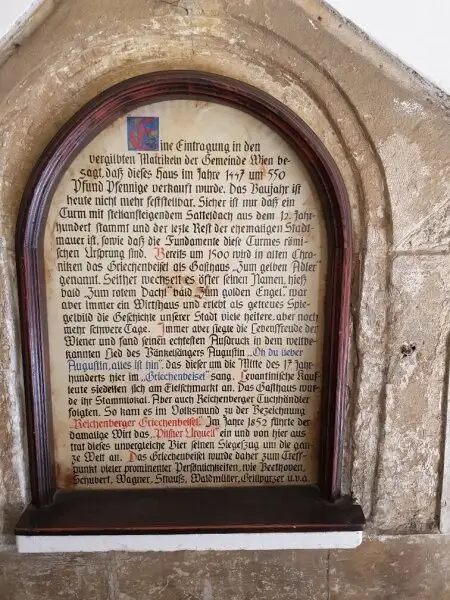 Eine Eintragung in den
vergilbten Matrikeln der Gemeinde Wien be-
sagt, daß dieses Haus im Jahre 1447 um 550
Pfund Pfennige verkauft wurde. Das Baujahr ist
heute nicht mehr feststellbar. Sicher ist nur daß ein
Turm mit steilansteigendem Satteldach aus dem 12. Jahr-
hundert stammt und der letzte Rest der ehemaligen Stadt-
mauer ist, sowie daß die Fundamente dieses Turmes römi-
schen Ursprung sind. Bereits um 1500 wird in alten Chro-
niken das Griechenbeisel als Gasthaus „Zum gelben Adler"
genannt. Seither wechselt es öfter seinen Namen, hieß
bald „Zum rotem Dachl" bald „Zum golden Engel", war
aber immer ein Wirtshaus und erlebt als getreues Spie-
gelbild die Geschichte unserer Stadt viele heitere, aber noch
mehr schwere Tage. Immer aber siegte die Lebensfreude der
Wiener und fand seinen echtesten Ausdruck in dem weltbe-
kannten Lied des Bänkelsängers Augustin „Oh du lieber
Augustin, alles ist hin", das dieser um die Mitte des 17. Jahr-
hunderts hier im „Griechenbeisel" sang. Levantinische Kauf-
leute siedelten sich am Fleischmarkt an. Das Gasthaus wur-
de ihr Stammlokal. Aber auch Reichenberger Tuchhändler
folgten. So kam es im Volksmund zu der Bezeichnung
„Reichenberger Griechenbeisel". Im Jahre 1852 führte der
damalige Wirt das „Pilsner Urquell" ein und von hier aus
trat dieses unvergleiche Bier seinen Siegeszug um die gan-
ze Welt an. Das Griechenbeisel wurde daher zum Treff-
punkt vieler prominenter Persönlichkeiten, wie Beethoven,
Schubert, Wagner, Strauß, Waldmüller, Grillparzer u.v.a.